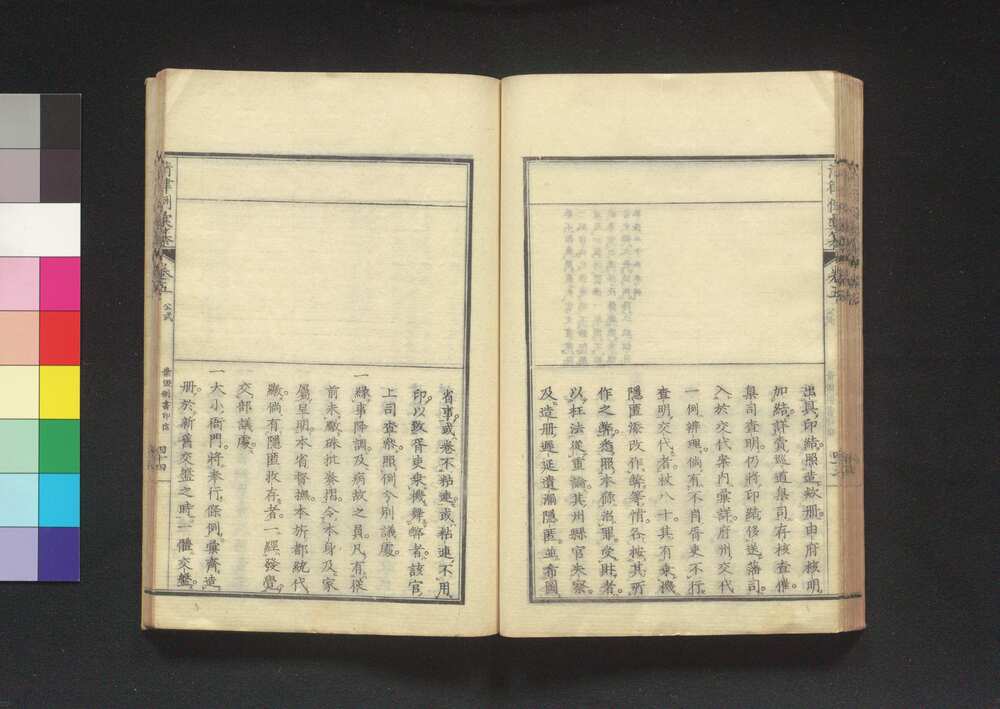 出具印結照造欵册申府核明
加結詳賫巡道臬司存核查催
臬司查明仍將印結移送藩司
入於交代案内彙詳府州交代
一例辨理倘有不肖胥吏不行
查明交代者杖八十其有乘機
隱匿添改作弊等情各按其所
作之弊悉照本條治罪受財者
以枉法從重論其州縣官失察
及造册遲延遺漏隱匿並希圖
省事或卷不粘連或粘連不用
印以致胥吏乘機舞弊者該官
上司查叅照例分别議處
一緣事降調及病故之員凡有從
前未繳硃批奏摺令本身及家
屬呈明本省督撫本旂都統代
繳倘有隱匿收存者一經發覺
交部議處
一大小衙門將奉行條例彙齊造
册於新舊交盤之時一體交盤
卷五
公式
棄毁制書印信
四十四